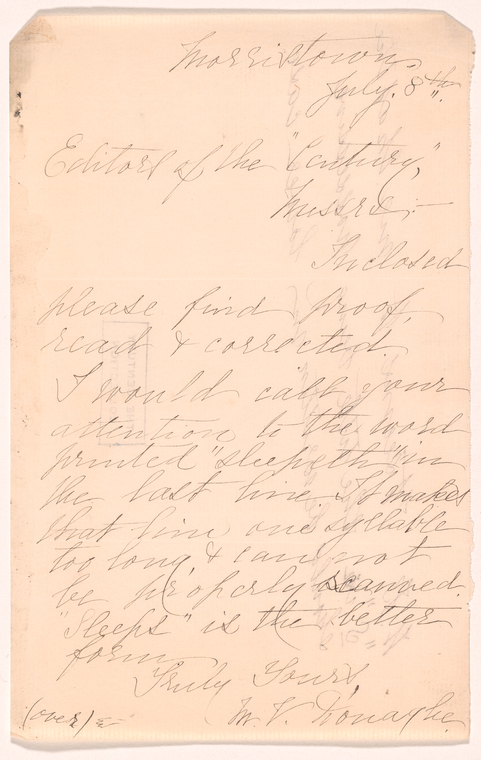 Morristown,
July. 8th.
Editors of the "Century,"
Messrs:—
Inclosed
please find proof,
read & corrected.
I would call your
attention to the word
printed "sleepeth" in
the last line. It makes
that line one syllable
too long, & can not
be properly scanned.
"Sleeps" is the better
form.
Truly Yours,
M. V. Donaghe.
(over)